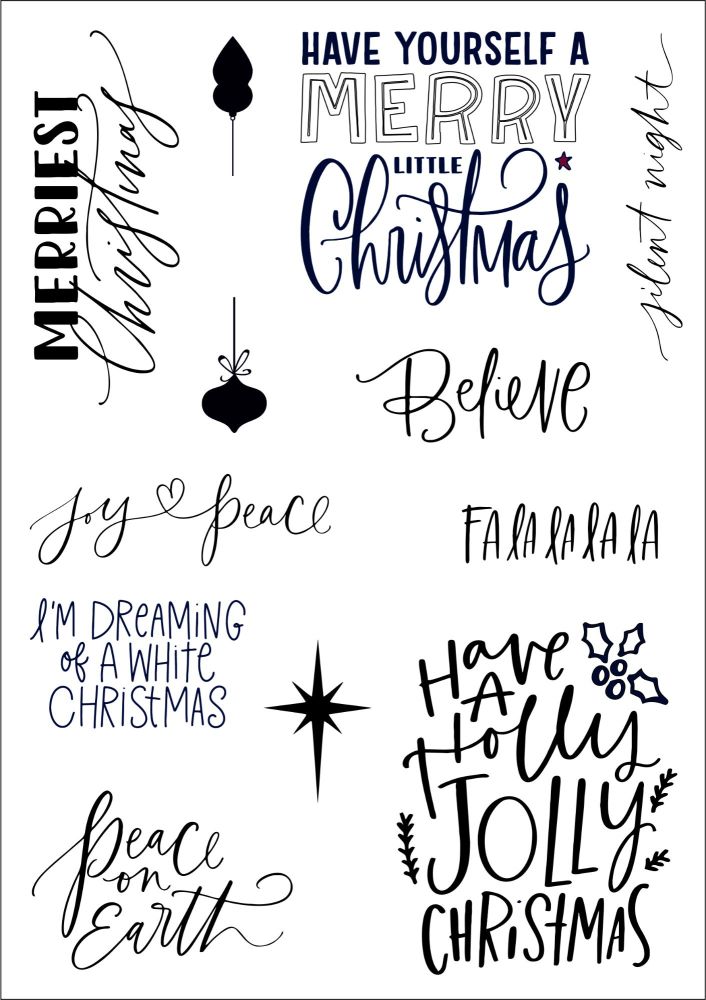 MERRIEST
Christmas
HAVE YOURSELF A
MERRY
LITTLE
Christmas
silent night
Believe
Joy peace
FALALALALA
I'M DREAMING
of A WHITE
CHRISTMAS
Have
A
Holly
JOLLY
CHRISTMAS
peace
on
Earth